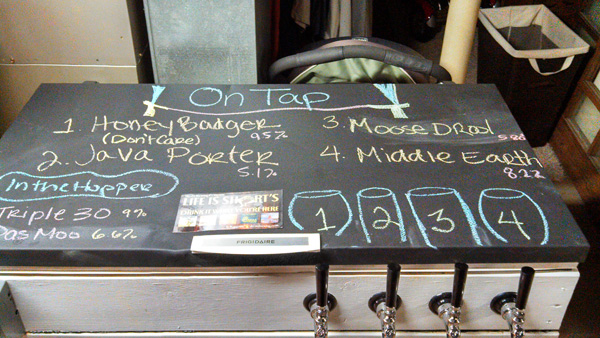 On Tap
1. Honey Badger
(Don't Care) 9.5%
2. Java Porter
5.1%
3. Moose Drool
4. Middle Earth
8.22
In the Hopper
Triple 30 9%
Das Moo 6.6%
LIFE IS SHORT'S
FRIGIDAIRE
1 2 3 4